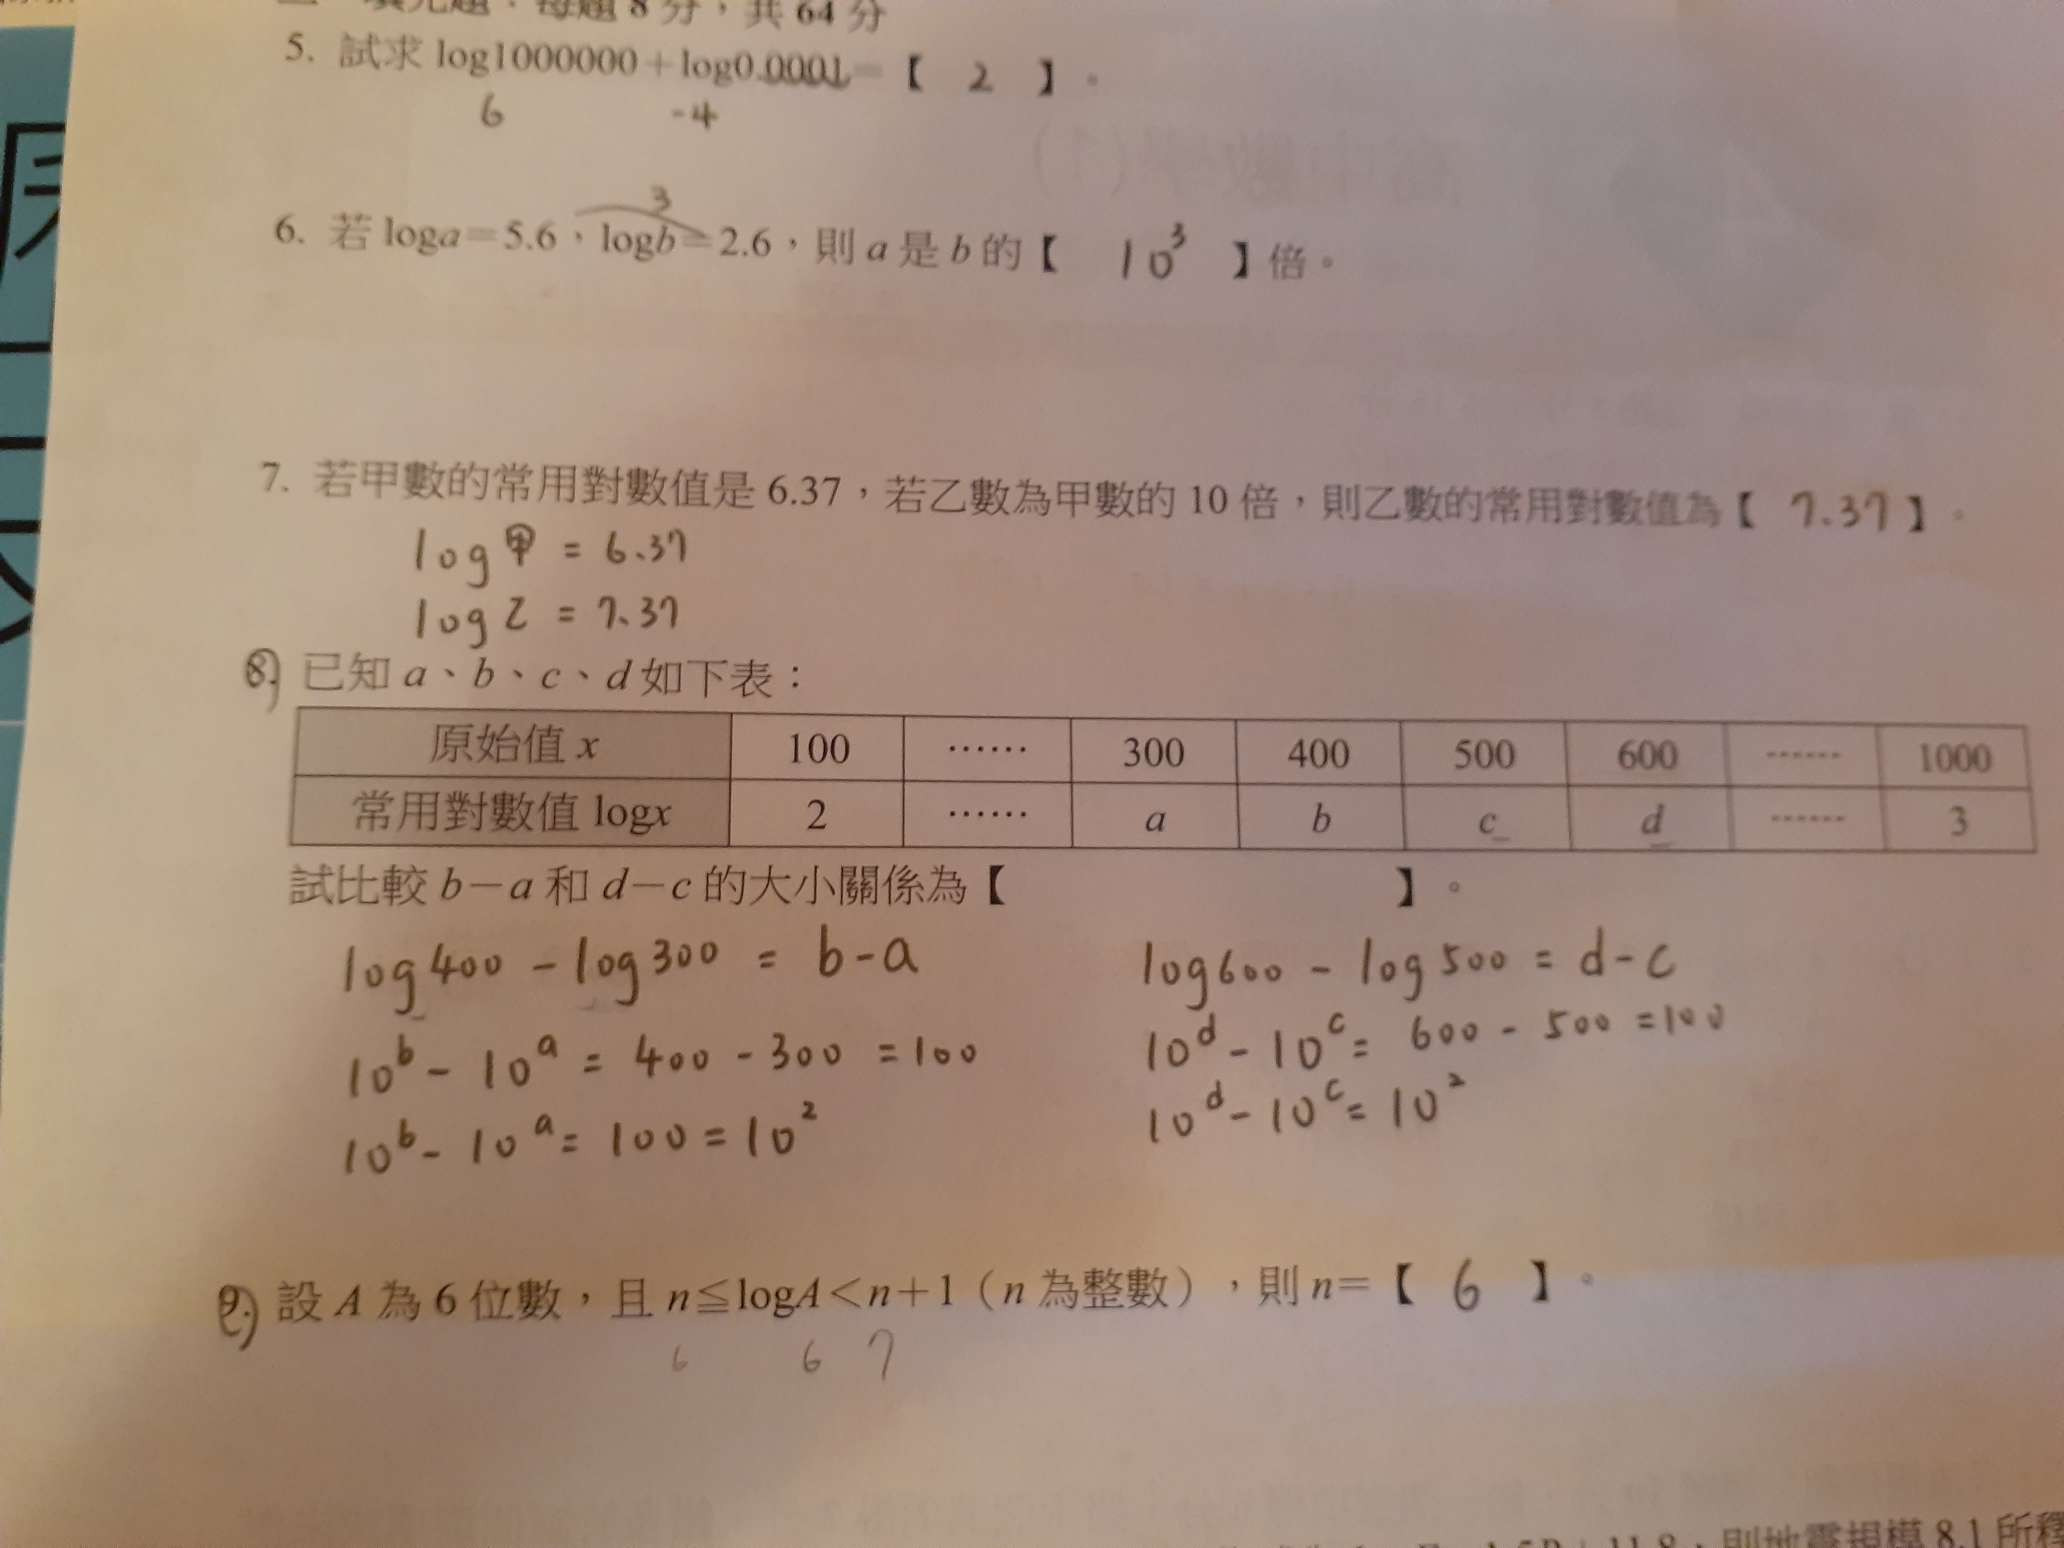 填充題：每題 8 分，共 64 分
5. 試求 log1000000＋log0.0001＝【 2 】。
6 -4
3
6. 若 loga＝5.6，logb＝2.6，則 a 是 b 的【 10³ 】倍。
7. 若甲數的常用對數值是 6.37，若乙數為甲數的 10 倍，則乙數的常用對數值為【 7.37 】。
log甲 = 6.37
log乙 = 7.37
8. 已知 a、b、c、d 如下表：
原始值 x 100 …… 300 400 500 600 …… 1000
常用對數值 logx 2 …… a b c d …… 3
試比較 b－a 和 d－c 的大小關係為【 】。
log400 - log300 = b-a log600 - log500 = d-c
10ᵇ - 10ᵃ = 400 - 300 = 100 10ᵈ - 10ᶜ = 600 - 500 = 100
10ᵇ - 10ᵃ = 100 = 10² 10ᵈ - 10ᶜ = 10²
9. 設 A 為 6 位數，且 n≦logA＜n＋1（n 為整數），則 n＝【 6 】。
6 6 7
，則地震規模 8.1 所釋